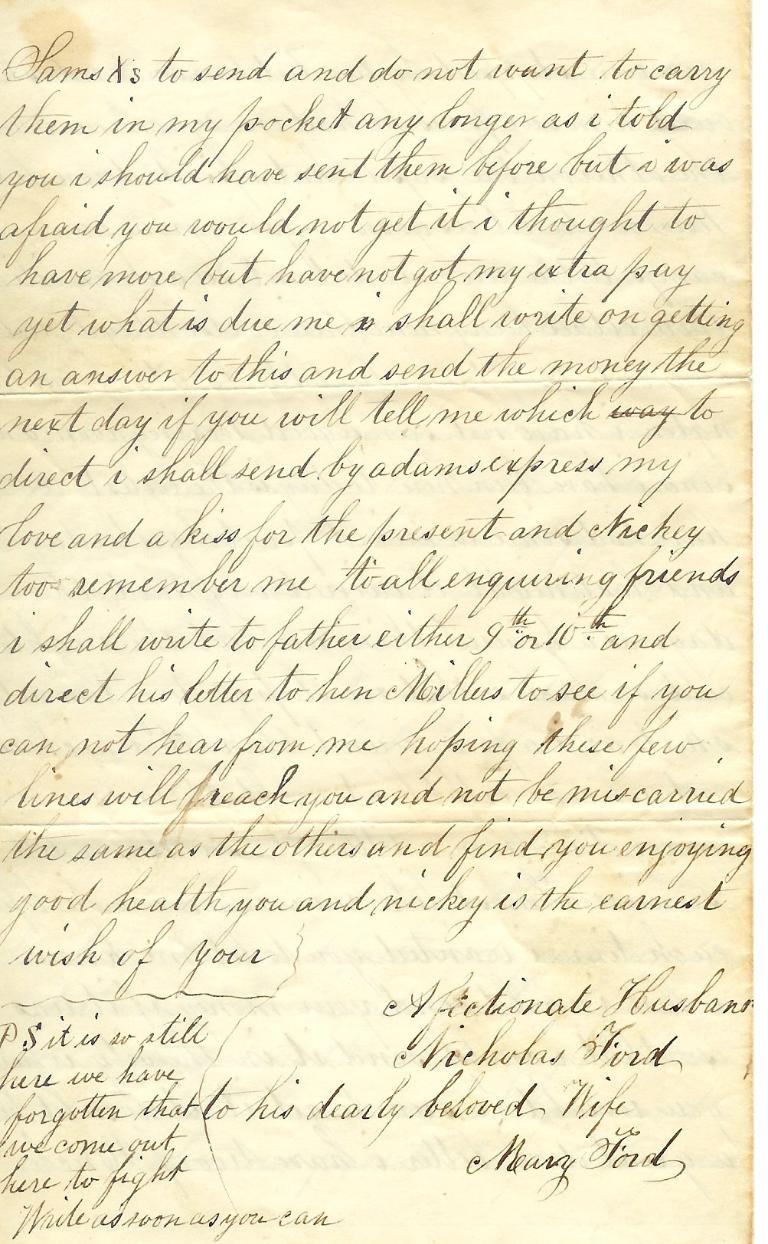 Sams Xs to send and do not want to carry
them in my pocket any longer as i told
you i should have sent them before but i was
afraid you would not get it i thought to
have more but have not got my extra pay
yet what is due me shall write on getting
an answer to this and send the money the
next day if you will tell me which way to
direct i shall send by adams express my
love and a kiss for the present and Nickey
too remember me to all enquiring friends
i shall write to father either 9th or 10th and
direct his letter to hen Millers to see if you
can not hear from me hoping these few
lines will reach you and not be miscarried
the same as the others and find you enjoying
good health you and nickey is the earnest
wish of your
Afectionate Husband
Nicholas Ford
to his dearly beloved Wife
Mary Ford
PS it is so still
here we have
forgotten that
we come out
here to fight
Write as soon as you can